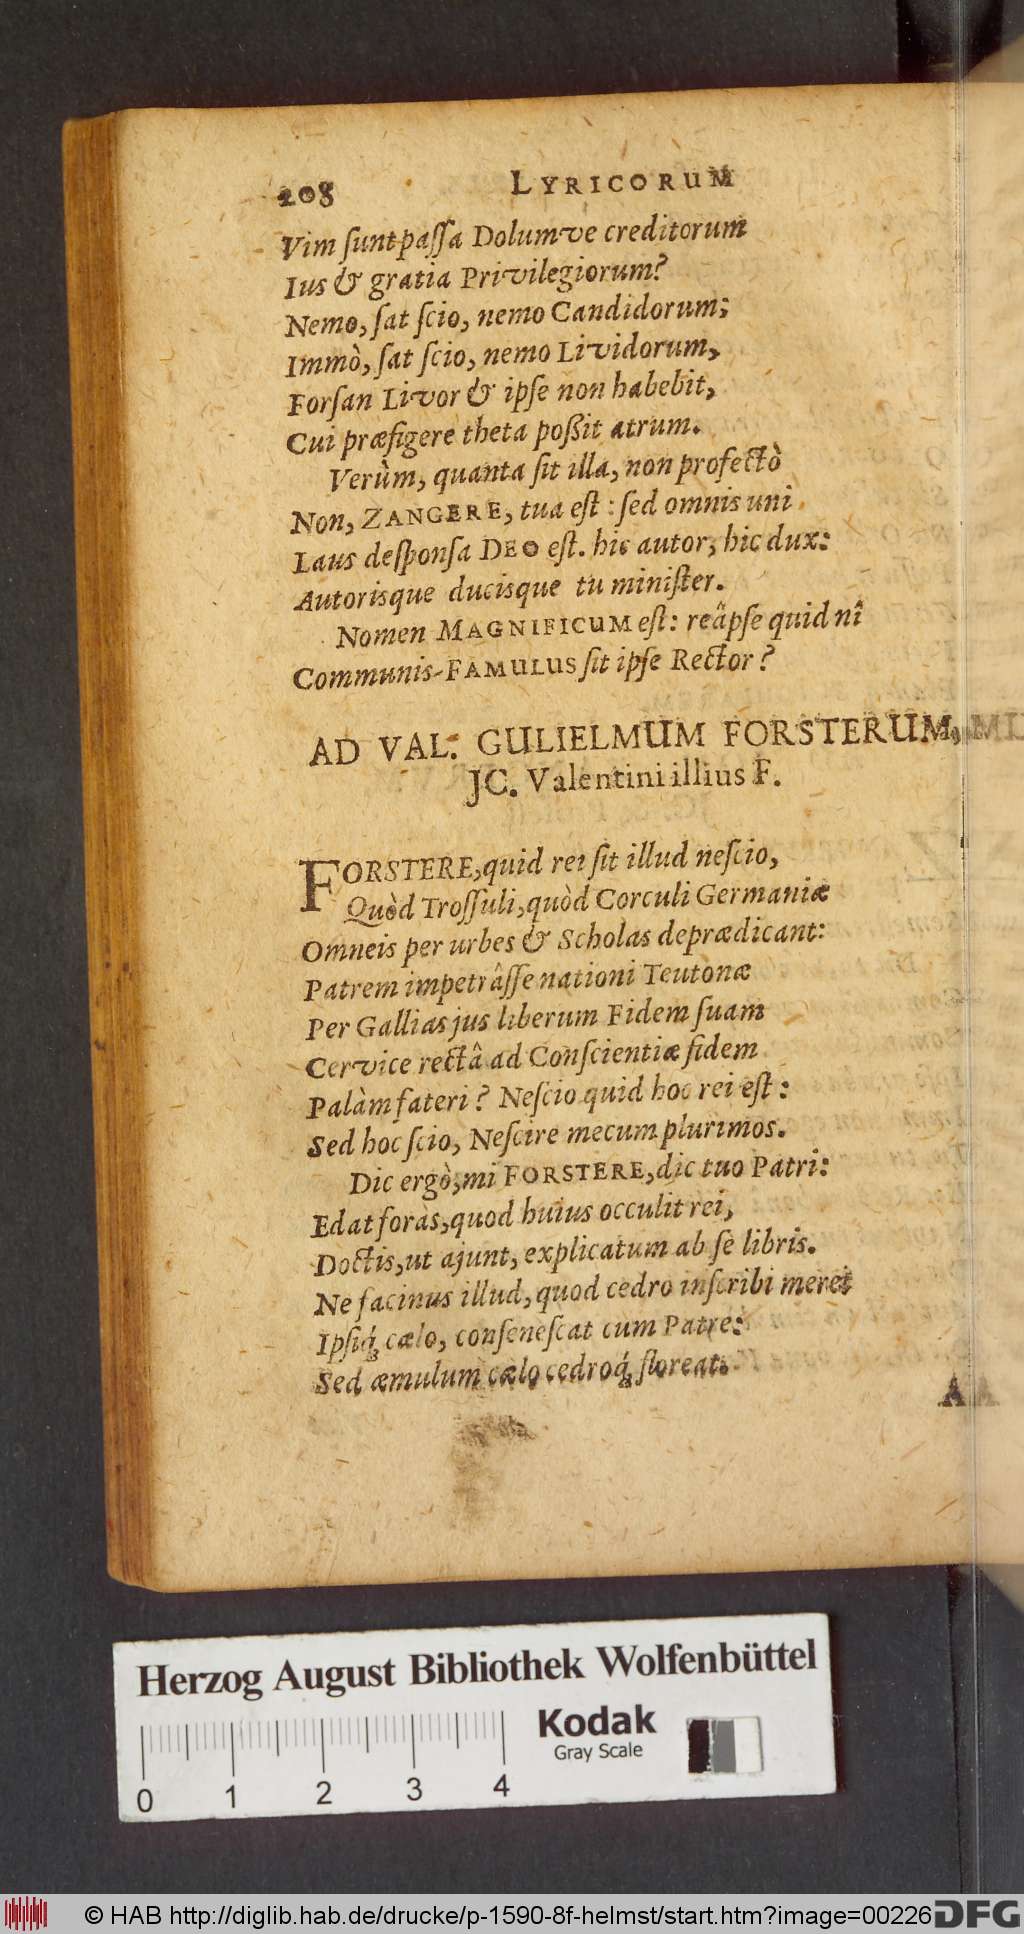 208 LYRICORUM
Vim ſunt paſſa Dolumve creditorum
Ius & gratia Privilegiorum?
Nemo, ſat ſcio, nemo Candidorum;
Immò, ſat ſcio, nemo Lividorum,
Forſan Livor & ipſe non habebit,
Cui præfigere theta poßit atrum.
Verùm, quanta ſit illa, non profectò
Non, ZANGERE, tua eſt : ſed omnis uni
Laus deſponſa DEO eſt. hic autor, hic dux:
Autorisque ducisque tu miniſter.
Nomen MAGNIFICUM eſt: reâpſe quid nî
Communis-FAMULUS ſit ipſe Rector?
AD VAL. GULIELMUM FORSTERUM,
JC. Valentini illius F.
FORSTERE, quid rei ſit illud neſcio,
Quòd Troſſuli, quòd Corculi Germaniæ
Omneis per urbes & Scholas deprædicant:
Patrem impetrâſſe nationi Teutonæ
Per Gallias jus liberum Fidem ſuam
Cervice rectâ ad Conſcientiæ fidem
Palàm fateri? Neſcio quid hoc rei eſt:
Sed hoc ſcio, Neſcire mecum plurimos.
Dic ergò, mi FORSTERE, dic tuo Patri:
Edat foràs, quod huius occulit rei,
Doctis, ut ajunt, explicatum ab ſe libris.
Ne facinus illud, quod cedro inſcribi meret
Ipſiq́; cælo, conſeneſcat cum Patre:
Sed æmulum cælo cedroq́; floreat.
AA
Herzog August Bibliothek Wolfenbüttel
Kodak
Gray Scale
0 1 2 3 4
© HAB http://diglib.hab.de/drucke/p-1590-8f-helmst/start.htm?image=00226
DFG